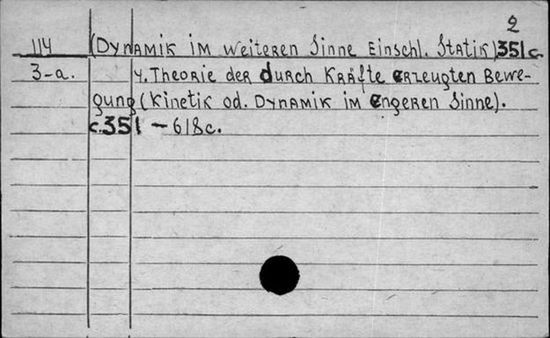 2
114 (Dynamik im weiteren Sinne Einschl. Statik) 351c.
3-a. 4. Theorie der durch Kräfte erzeugten Bewe-
gung (Kinetik od. Dynamik im engeren Sinne).
c.351 - 618c.